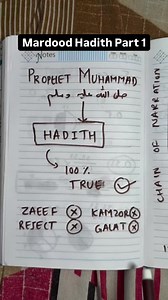 Mardood Hadith Part 1
Notes
PROPHET MUHAMMAD
صلى الله عليه وسلم
HADITH
100 %
TRUE!
ZAEEF KAMZOR
REJECT GALAT
CHAIN OF NARRATION